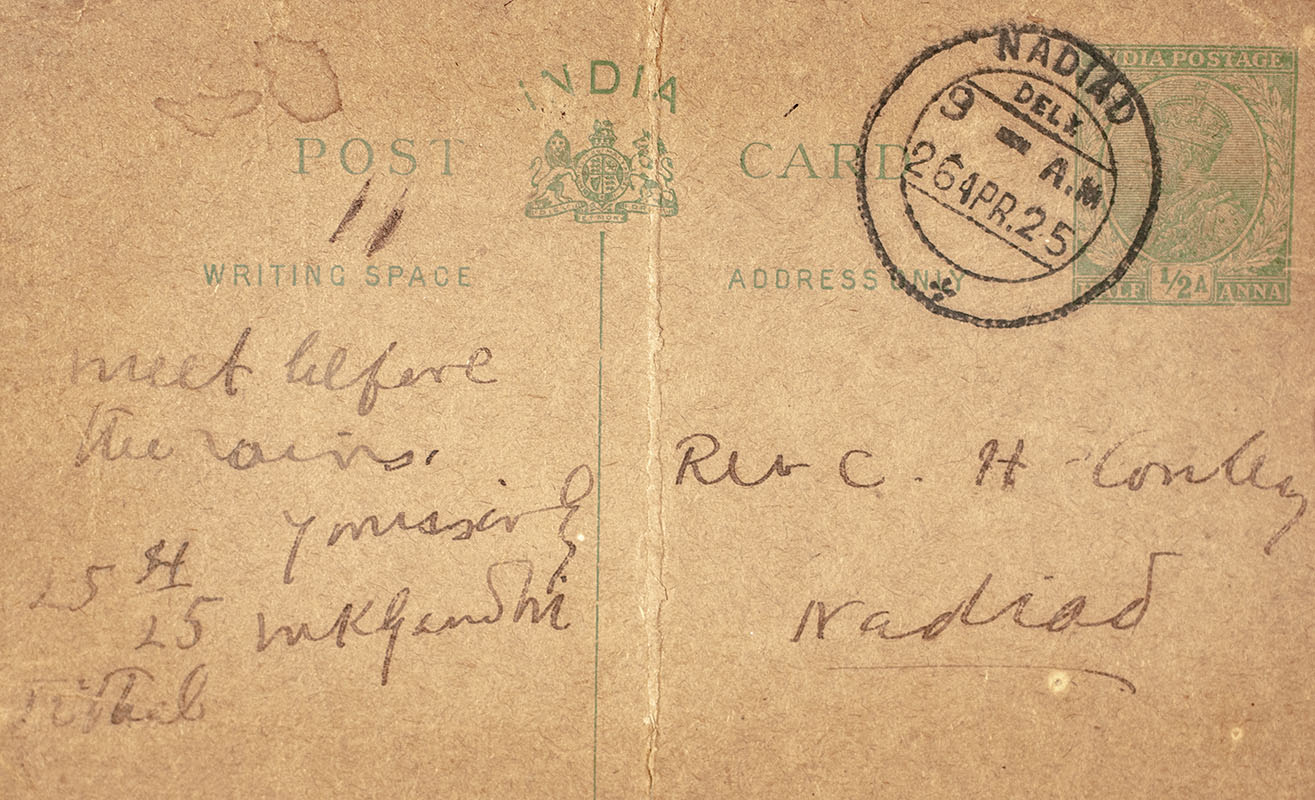 INDIA
POST CARD
WRITING SPACE
ADDRESS ONLY
NADIAD
DELY
9 - A.M
26 APR. 25
INDIA POSTAGE
HALF 1/2A ANNA
meet before
the rains.
yours sincly
25 4
25 MKGandhi
Tithal
Rev C. H Conley
Nadiad